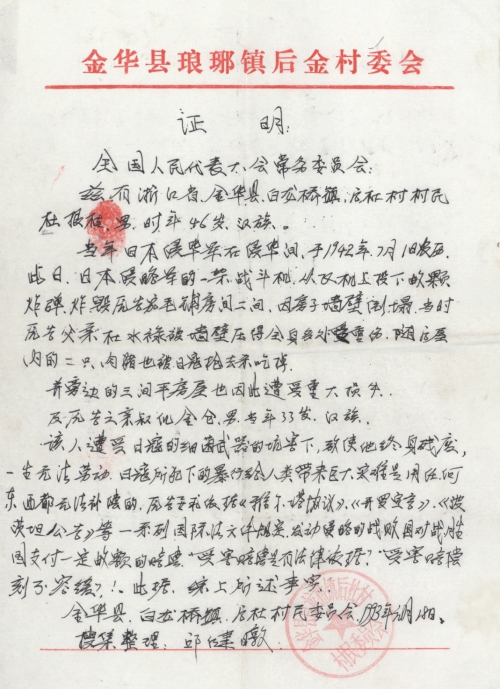 金华县琅琊镇后金村委会
证 明:
全国人民代表大会常务委员会:
兹有浙江省,金华县,白龙桥镇,后杜村村民
杜根 男.时年46岁.汉族.。
当年日本侵华军在侵华间,于1942年.7月1日农历.
此日.日本侵略军的一架战斗机.从飞机上投下的颗
炸弹.炸毁原告 房间二间,因房子墙壁倒塌.当时
原告父亲 杜水禄被墙壁压得全身多处重伤.随后屋
内的二只.肉猪也被日寇抢去来吃掉.
并旁边的三间平房屋也因此遭受重大损失.
反原告之亲叔伦金仓.男.当年33岁.汉族.
该人遭受日寇的细菌武器的坑害下,致使他终身残废,
一生无法劳动.日寇所犯下的暴行给人类带来巨大灾难是用任何
东西都无法补偿的.原告要求依据《雅尔塔协议》.《开罗宣言》.《波
茨坦公告》等一系列国际法文件规定.发动侵略的战败国对战胜
国支付一定的数的赔偿"受害赔偿是有法律依据?"受害赔偿
刻不容缓?!。此据.综上所述事实.
金华县.白龙桥镇.后杜村民委员会.1993年 月18日。
搜集整理:邱建